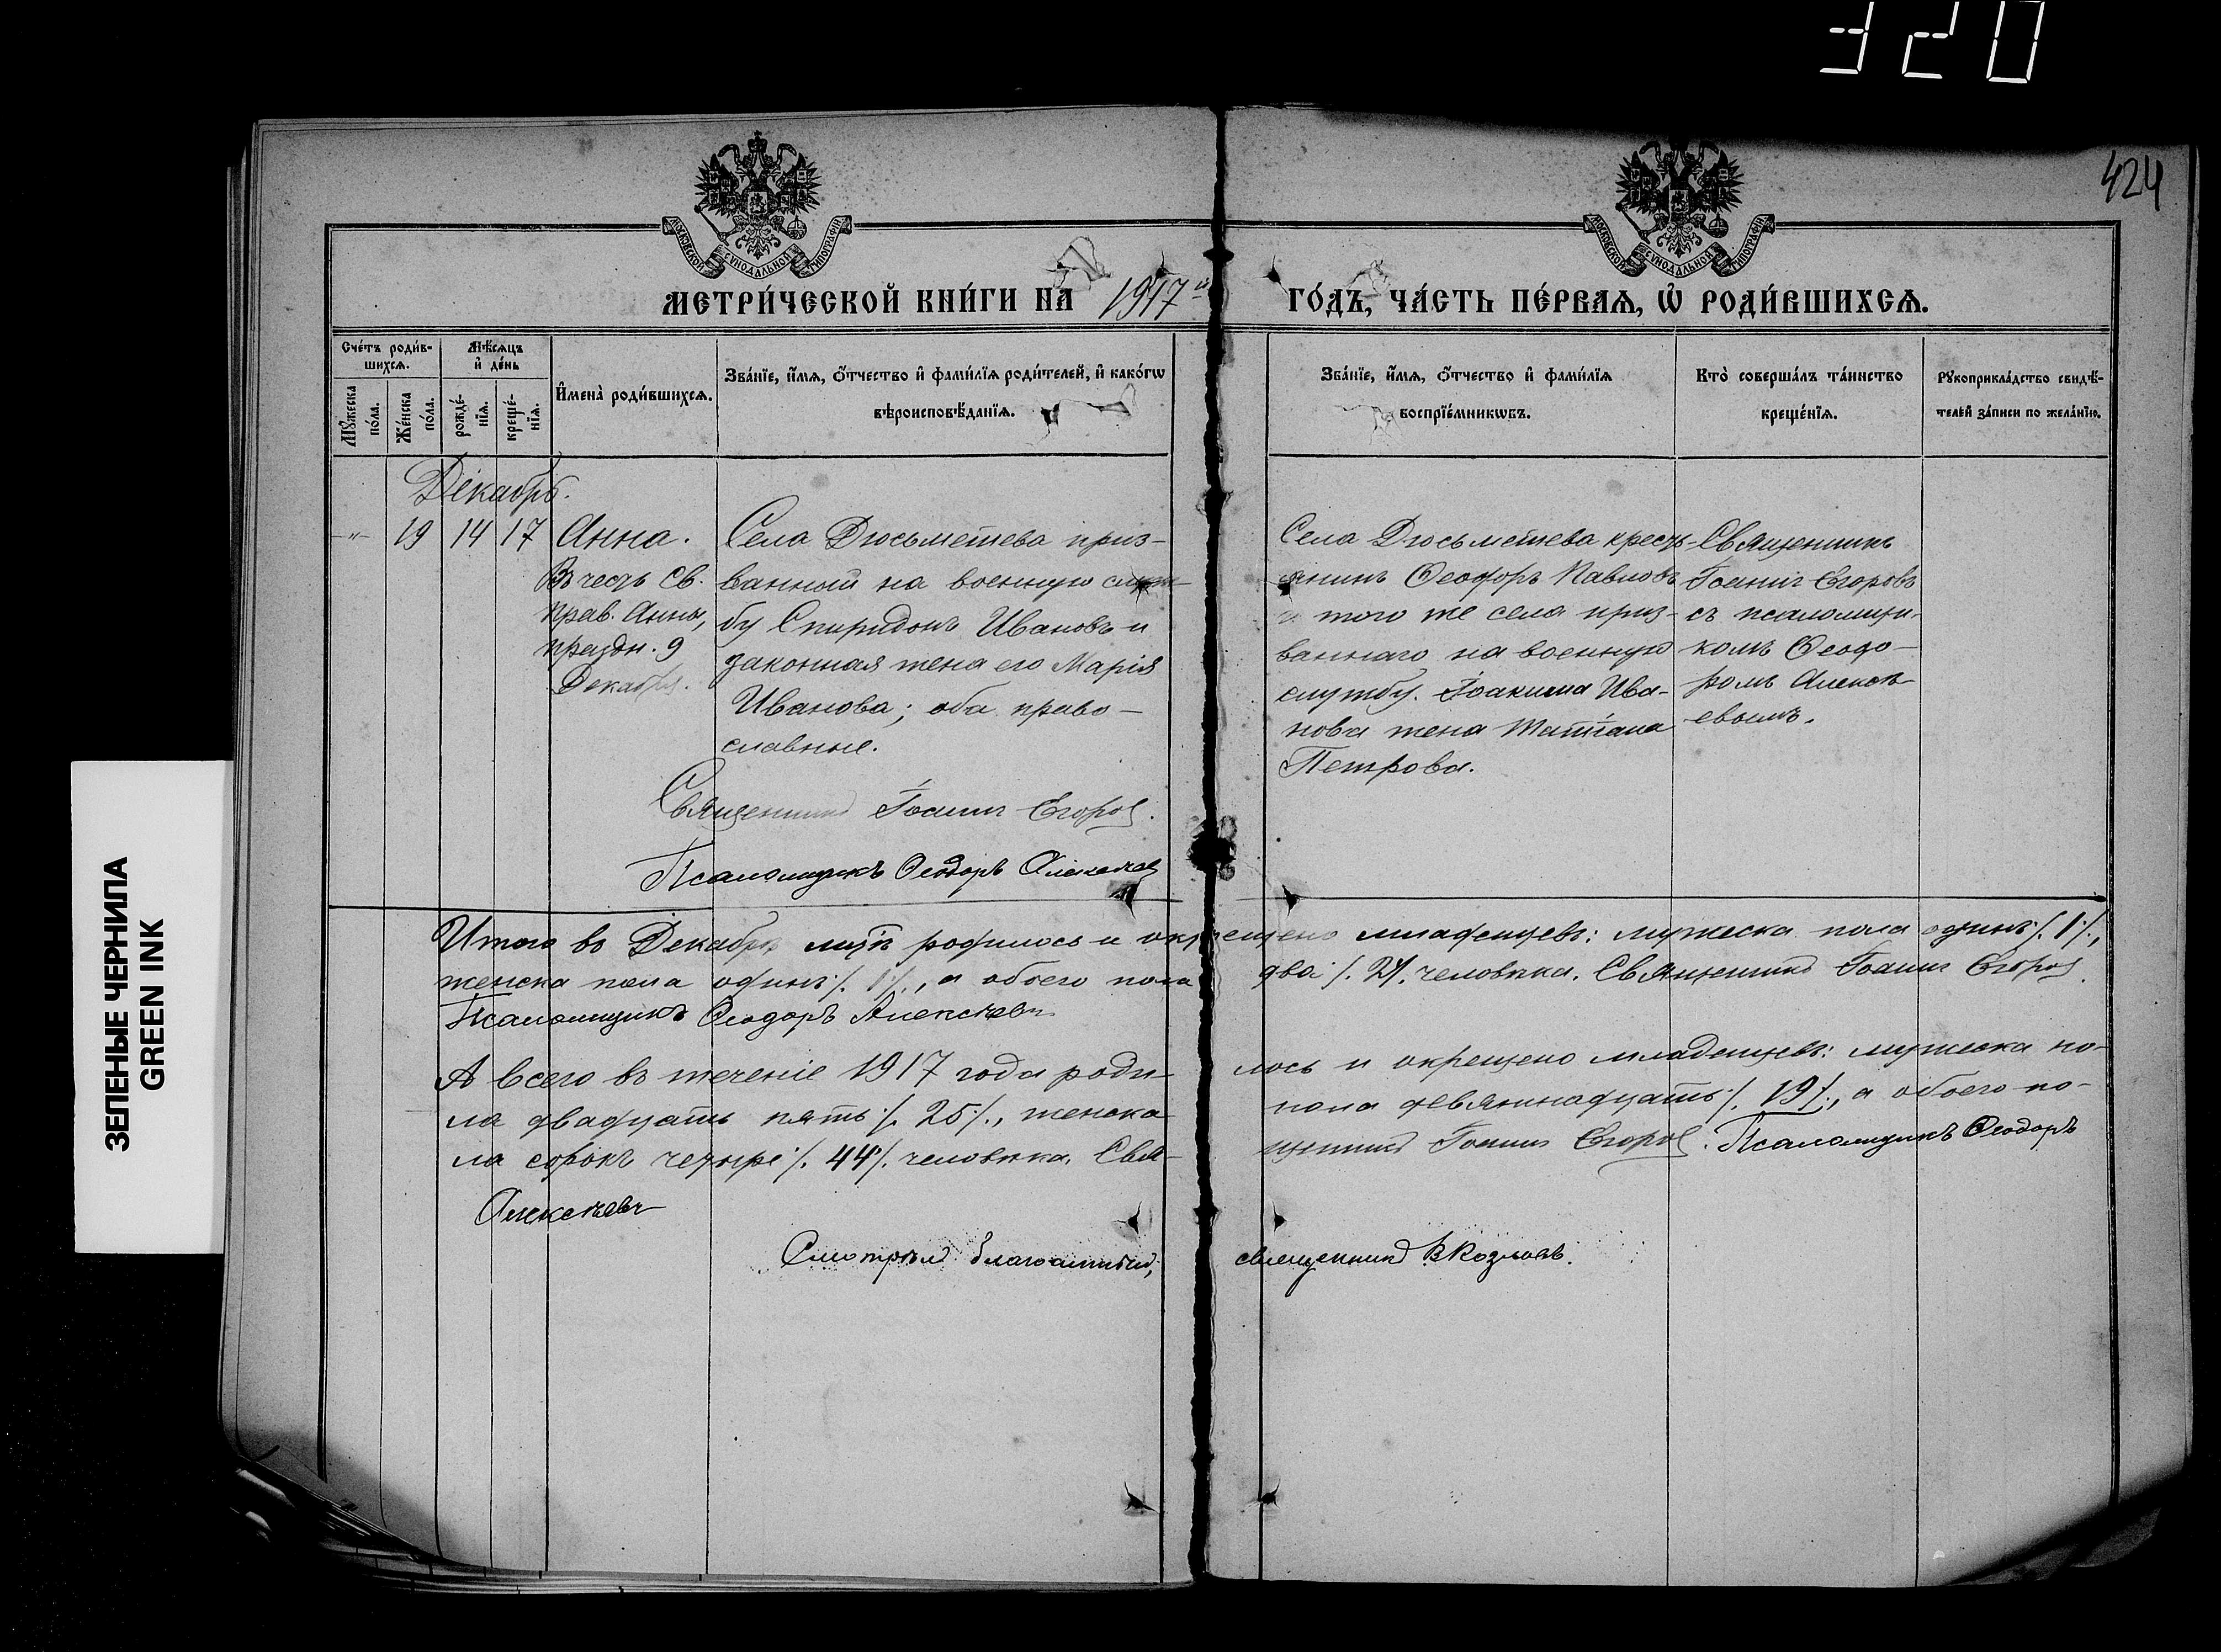 320
424
МОСКОВСКОЙ СѴНОДАЛЬНОЙ ТИПОГРАФІИ
МОСКОВСКОЙ СѴНОДАЛЬНОЙ ТИПОГРАФІИ
МЕТРИ́ЧЕСКОЙ КНИ́ГИ НА 1917й ГО́ДЪ, ЧА́СТЬ ПЕ́РВАѦ, Ѡ҆ РОДИ́ВШИХСѦ.
Сче́тъ роди́в-
шихсѧ.
Мѣ́сѧцъ
и҆ де́нь
Мꙋ́жеска
по́ла.
Же́нска
по́ла.
рожде́-
нїѧ.
креще́-
нїѧ.
И҆мена̀ роди́вшихсѧ.
Зва́нїе, и҆́мѧ, ѻ҆́тчество и҆ фами́лїѧ роди́телей, и҆ како́гѡ
вѣроисповѣ́данїѧ.
Зва́нїе, и҆́мѧ, ѻ҆́тчество и҆ фами́лїѧ
воспрїе́мникѡвъ.
Кто̀ соверша́лъ та́инство
креще́нїѧ.
Рꙋкоприкла́дство свидѣ́-
телей за́писи по жела́нїю.
Декабрь.
-"- 19 14 17 Анна.
Въ честь Св.
прав. Анны,
праздн. 9
Декабря.
Села Дюсьметева приз-
ванный на военную служ-
бу Спиридонъ Ивановъ и
законная жена его Марія
Иванова; оба право-
славные.
Села Дюсьметева кресть-
янинъ Ѳеофоръ Павловъ
и того же села приз-
ваннаго на военную
службу Іоакима Ива-
нова жена Татіана
Петрова.
Священникъ
Іоаннъ Егоровъ
съ псаломщи-
комъ Ѳеодо-
ромъ Алексѣ-
евымъ.
Священникъ Іоаннъ Егоровъ.
Псаломщикъ Ѳеодоръ Алексѣевъ
Итого въ Декабрѣ мцѣ родилось и окрещено младенцевъ: мужеска пола одинъ ./. 1 ./.,
женска пола одинъ ./. 1 ./., а обоего пола два ./. 2 ./. человѣка. Священникъ Іоаннъ Егоровъ.
Псаломщикъ Ѳеодоръ Алексѣевъ
А всего въ теченіе 1917 года роди- лось и окрещено младенцевъ: мужеска по-
ла двадцать пять ./. 25 ./., женска пола девятнадцать ./. 19 ./., а обоего по-
ла сорокъ четыре ./. 44 ./. человѣка. Свя- щенникъ Іоаннъ Егоровъ. Псаломщикъ Ѳеодоръ
Алексѣевъ
Смотрѣлъ благочинный, священникъ В Козловъ.
ЗЕЛЕНЫЕ ЧЕРНИЛА
GREEN INK